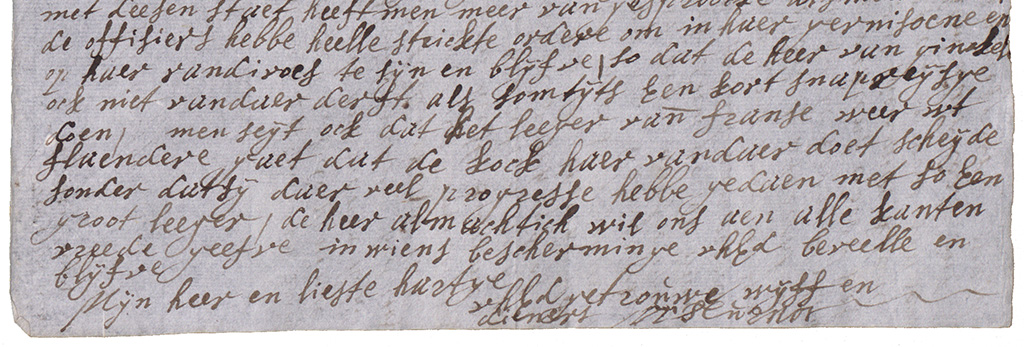 met deesen staet heeft men meer van gesproocke
de offisiers hebbe heelle strickte ordere om in haer gernisoene en
op haer randivoes te sijn en blijfve, so dat de heer van ginckel
ock niet vandaer derft als somtyts Een kort snapreijsye
doen, men seijt ock dat het leeger van franse weer wt
flaendere gaet dat de kock haer vandaer doet scheijde
sonder dat sy daer veel progresse hebbe gedaen met so Een
groot leeger, de heer almachtich wil ons aen alle kanten
vreede geefve in wiens bescherminge uhEd beveelle en
blijfve
Mijn heer en lieste hartye
uhEd getrouwe wijff en
dienaers